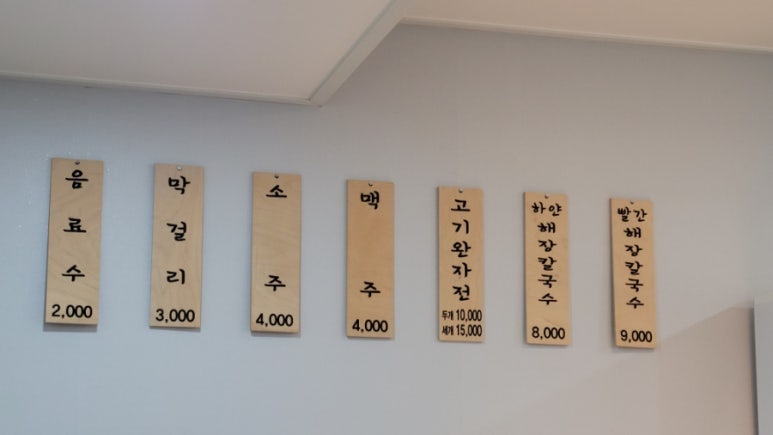 음료수
2,000
막걸리
3,000
소주
4,000
맥주
4,000
고기완자전
두개 10,000
세개 15,000
하얀
해장칼국수
8,000
빨간
해장칼국수
9,000